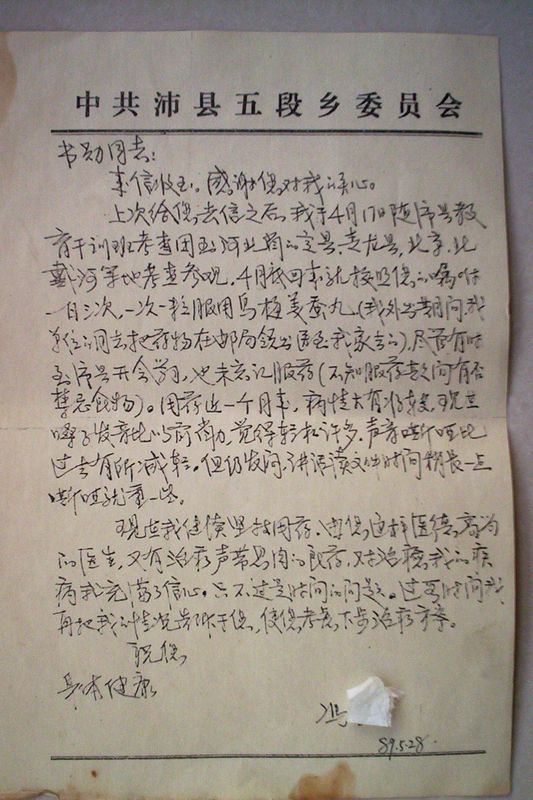 中共沛县五段乡委员会
书勋同志:
来信收到。感谢您对我的关心。
上次给您去信之后，我于4月17日随沛县教
育干训班考查团到河北的定县、北京、北
戴河等地考查参观，4月底回来就按照您的嘱咐
一日三次，一次一粒服用乌梅姜蚕丸（我外出期间我
单位的同志把药物在邮局领出送到我家去的），尽管有时
到沛县开会学习，也未忘记服药（不知服药之间有否
禁忌食物）。用药近一个月来，病情大有好转，现在
嗓子发音比以前有力，觉得轻松许多，声音嘶哑比
过去有所减轻。但仍发闷，讲话读文件时间稍长一点
嘶哑就重一些。
现在我继续坚持用药，由您这样医德高尚
的医生，又有治疗声带息肉的良药，对治愈我的疾
病我充满了信心。只不过是时间的问题。过一段时间我
再把我的情况告诉于您，使您考虑下步治疗方案。
祝您
身体健康
冯
89.5.28.